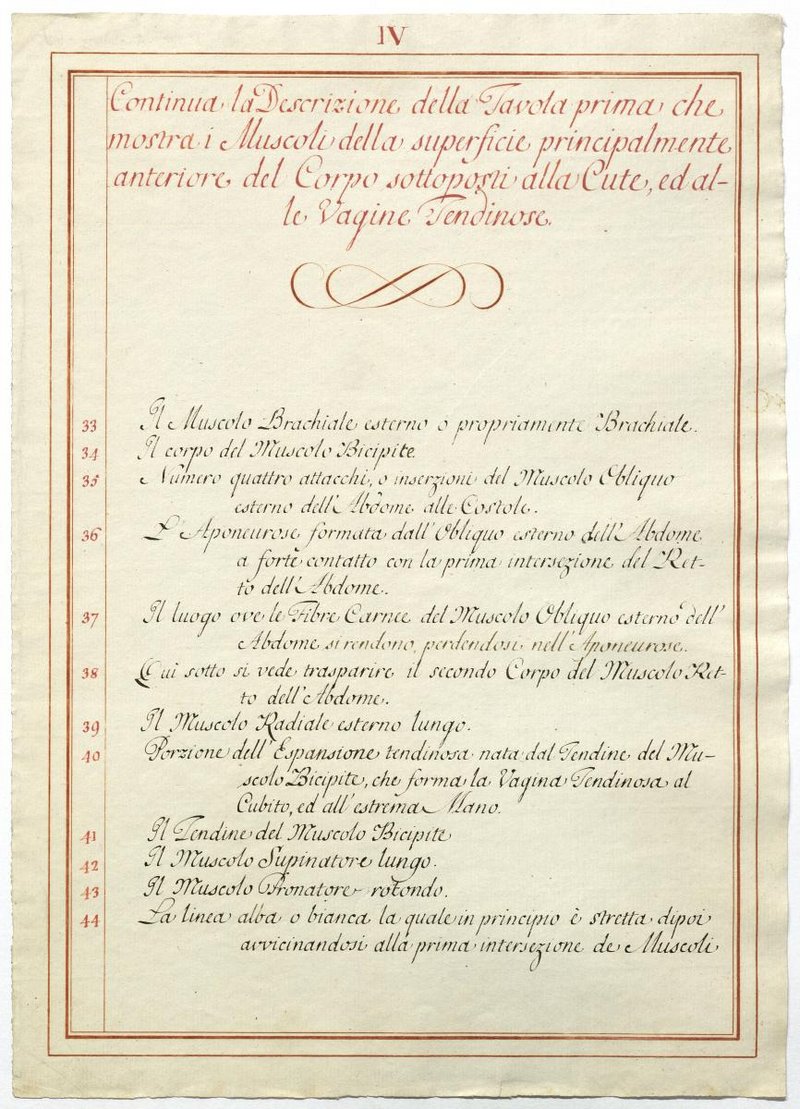 IV
Continua la Descrizione della Tavola prima che
mostra i Muscoli della superficie principalmente
anteriore del Corpo sottoposti alla Cute, ed al-
le Vagine Tendinose.
33 Il Muscolo Brachiale esterno o propriamente Brachiale.
34 Il corpo del Muscolo Bicipite.
35 Numero quattro attacchi, o inserzioni del Muscolo Obliquo
esterno dell'Abdome alle Costole.
36 L'Aponeurose formata dall'Obliquo esterno dell'Abdome
a forte contatto con la prima intersezione del Ret-
to dell'Abdome.
37 Il luogo ove le Fibre Carnee del Muscolo Obliquo esterno dell'
Abdome si rendono, perdendosi nell'Aponeurose.
38 Quì sotto si vede trasparire il secondo Corpo del Muscolo Ret-
to dell'Abdome.
39 Il Muscolo Radiale esterno lungo.
40 Porzione dell'Espansione tendinosa nata dal Tendine del Mu-
scolo Bicipite, che forma la Vagina Tendinosa al
Cubito, ed all'estrema Mano.
41 Il Tendine del Muscolo Bicipite
42 Il Muscolo Supinatore lungo.
43 Il Muscolo Pronatore rotondo.
44 La linea alba o bianca la quale in principio è stretta dipoi
avvicinandosi alla prima intersezione de Muscoli